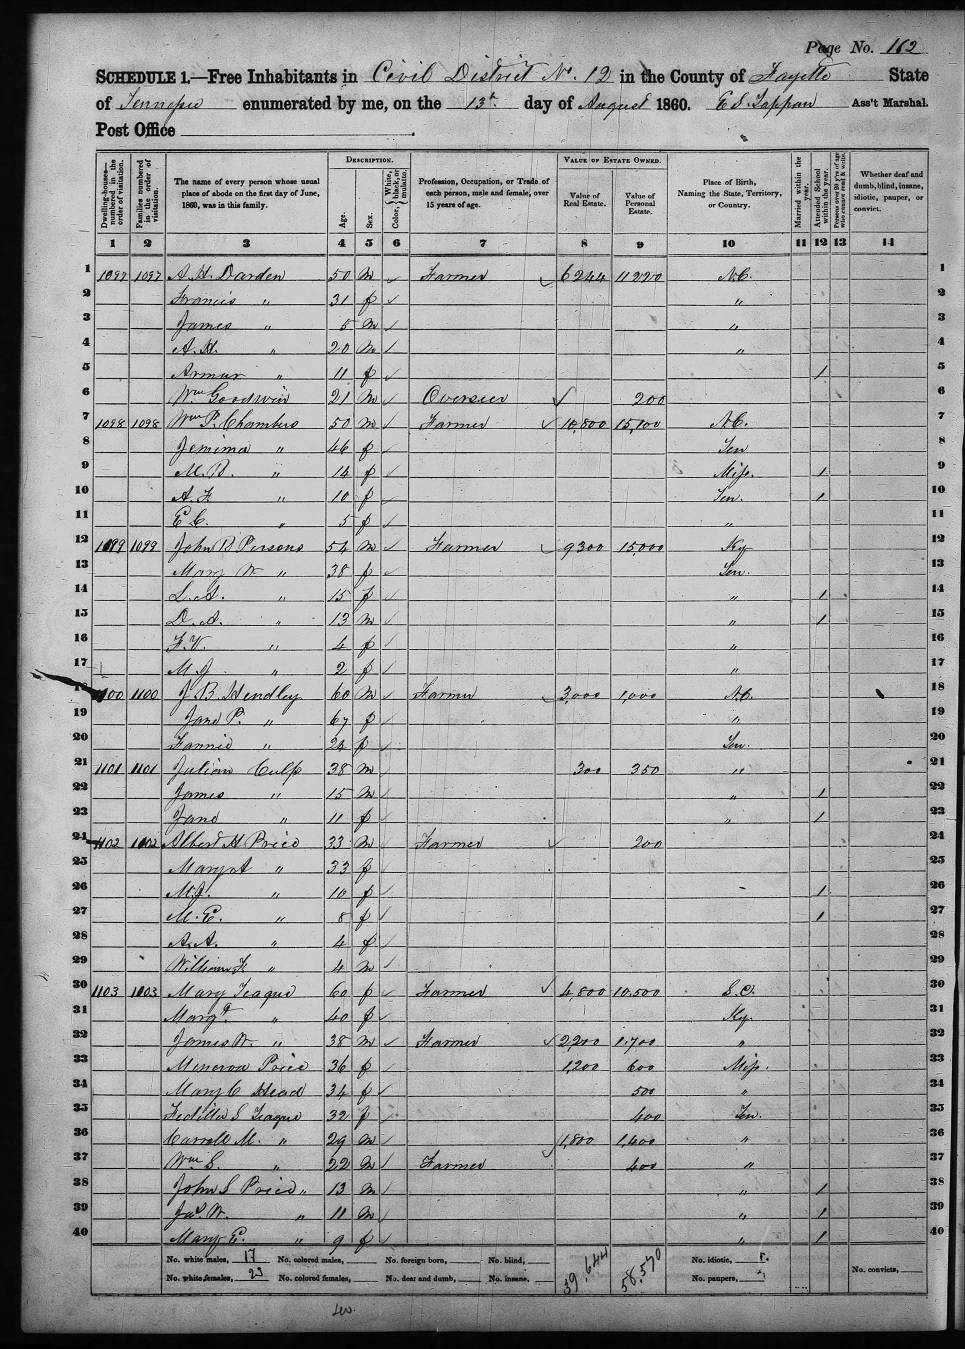 Page No. 162
SCHEDULE 1.—Free Inhabitants in Civil District No. 12 in the County of Fayette State
of Tennessee enumerated by me, on the 13th day of August 1860. E S. Tappan Ass't Marshal.
Post Office
Dwelling-houses—numbered in the order of visitation.
Families numbered in the order of visitation.
The name of every person whose usual place of abode on the first day of June, 1860, was in this family.
DESCRIPTION.
Age.
Sex.
Color, White, black, or mulatto.
Profession, Occupation, or Trade of each person, male and female, over 15 years of age.
VALUE OF ESTATE OWNED.
Value of Real Estate.
Value of Personal Estate.
Place of Birth, Naming the State, Territory, or Country.
Married within the year.
Attended School within the year.
Persons over 20 y'rs of age who cannot read & write.
Whether deaf and dumb, blind, insane, idiotic, pauper, or convict.
1 2 3 4 5 6 7 8 9 10 11 12 13 14
1 1097 1097 A. H. Darden 50 m Farmer 6244 11220 N.C. 1
2 Francis " 31 f " 2
3 James " 5 m " 3
4 A. H. " 20 m " 4
5 Armur " 11 f / 5
6 Wm Goodwin 21 m Overseer 200 6
7 1098 1098 Wm P. Chambers 50 m Farmer 10,800 15,100 N.C. 7
8 Jemima " 46 f Ten 8
9 M. B. " 14 f Miss. / 9
10 A. F. " 10 f Ten. / 10
11 E. C. " 5 f " 11
12 1099 1099 John B Persons 54 m Farmer 9300 15,000 Ky 12
13 Mary W " 38 f Ten. 13
14 L. A. " 15 f " / 14
15 D. A. " 13 m " / 15
16 F. V. " 4 f " 16
17 M. J " 2 f " 17
18 1100 1100 J. B. Hendley 60 m Farmer 3,000 1,000 N.C. 18
19 Jane P. " 67 f " 19
20 Fannie " 24 f Ten. 20
21 1101 1101 Julian Culp 38 m 300 350 " 21
22 James " 15 m " / 22
23 Jane " 11 f " / 23
24 1102 1102 Albert H Price 33 m Farmer 200 24
25 Mary A " 33 f 25
26 M. J. " 10 f / 26
27 M. E. " 8 f / 27
28 A. A. " 4 f 28
29 William F. " 4 m 29
30 1103 1103 Mary Teague 60 f Farmer 4,800 10,500 S.C. 30
31 Margt. " 40 f Ky. 31
32 James W. " 38 m Farmer 2,200 1,700 " 32
33 Minerva Price 36 f 1,200 600 Miss. 33
34 Mary C Head 34 f 500 " 34
35 S Teague 32 f 400 Ten. 35
36 Carroll M. " 29 m 1,800 1,400 " 36
37 Wm S. " 22 m Farmer 400 " 37
38 John S Price " 13 m " / 38
39 Jas W. " 11 m " / 39
40 Mary E. " 9 f " / 40
No. white males, 17 No. colored males, No. foreign born, No. blind, 39,644 58,570 No. idiotic,
No. white females, 23 No. colored females, No. deaf and dumb, No. insane, No. paupers, No. convicts,